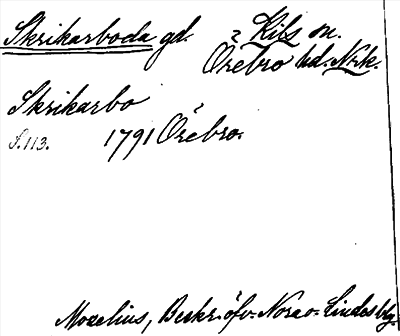 Skrikarboda gd. Kils sn.
Örebro hd. Nrk.
Skrikarbo
S. 113. 1791 Örebro.
Mozelius, Beskr. öfv. Nora o. Lindesbg.